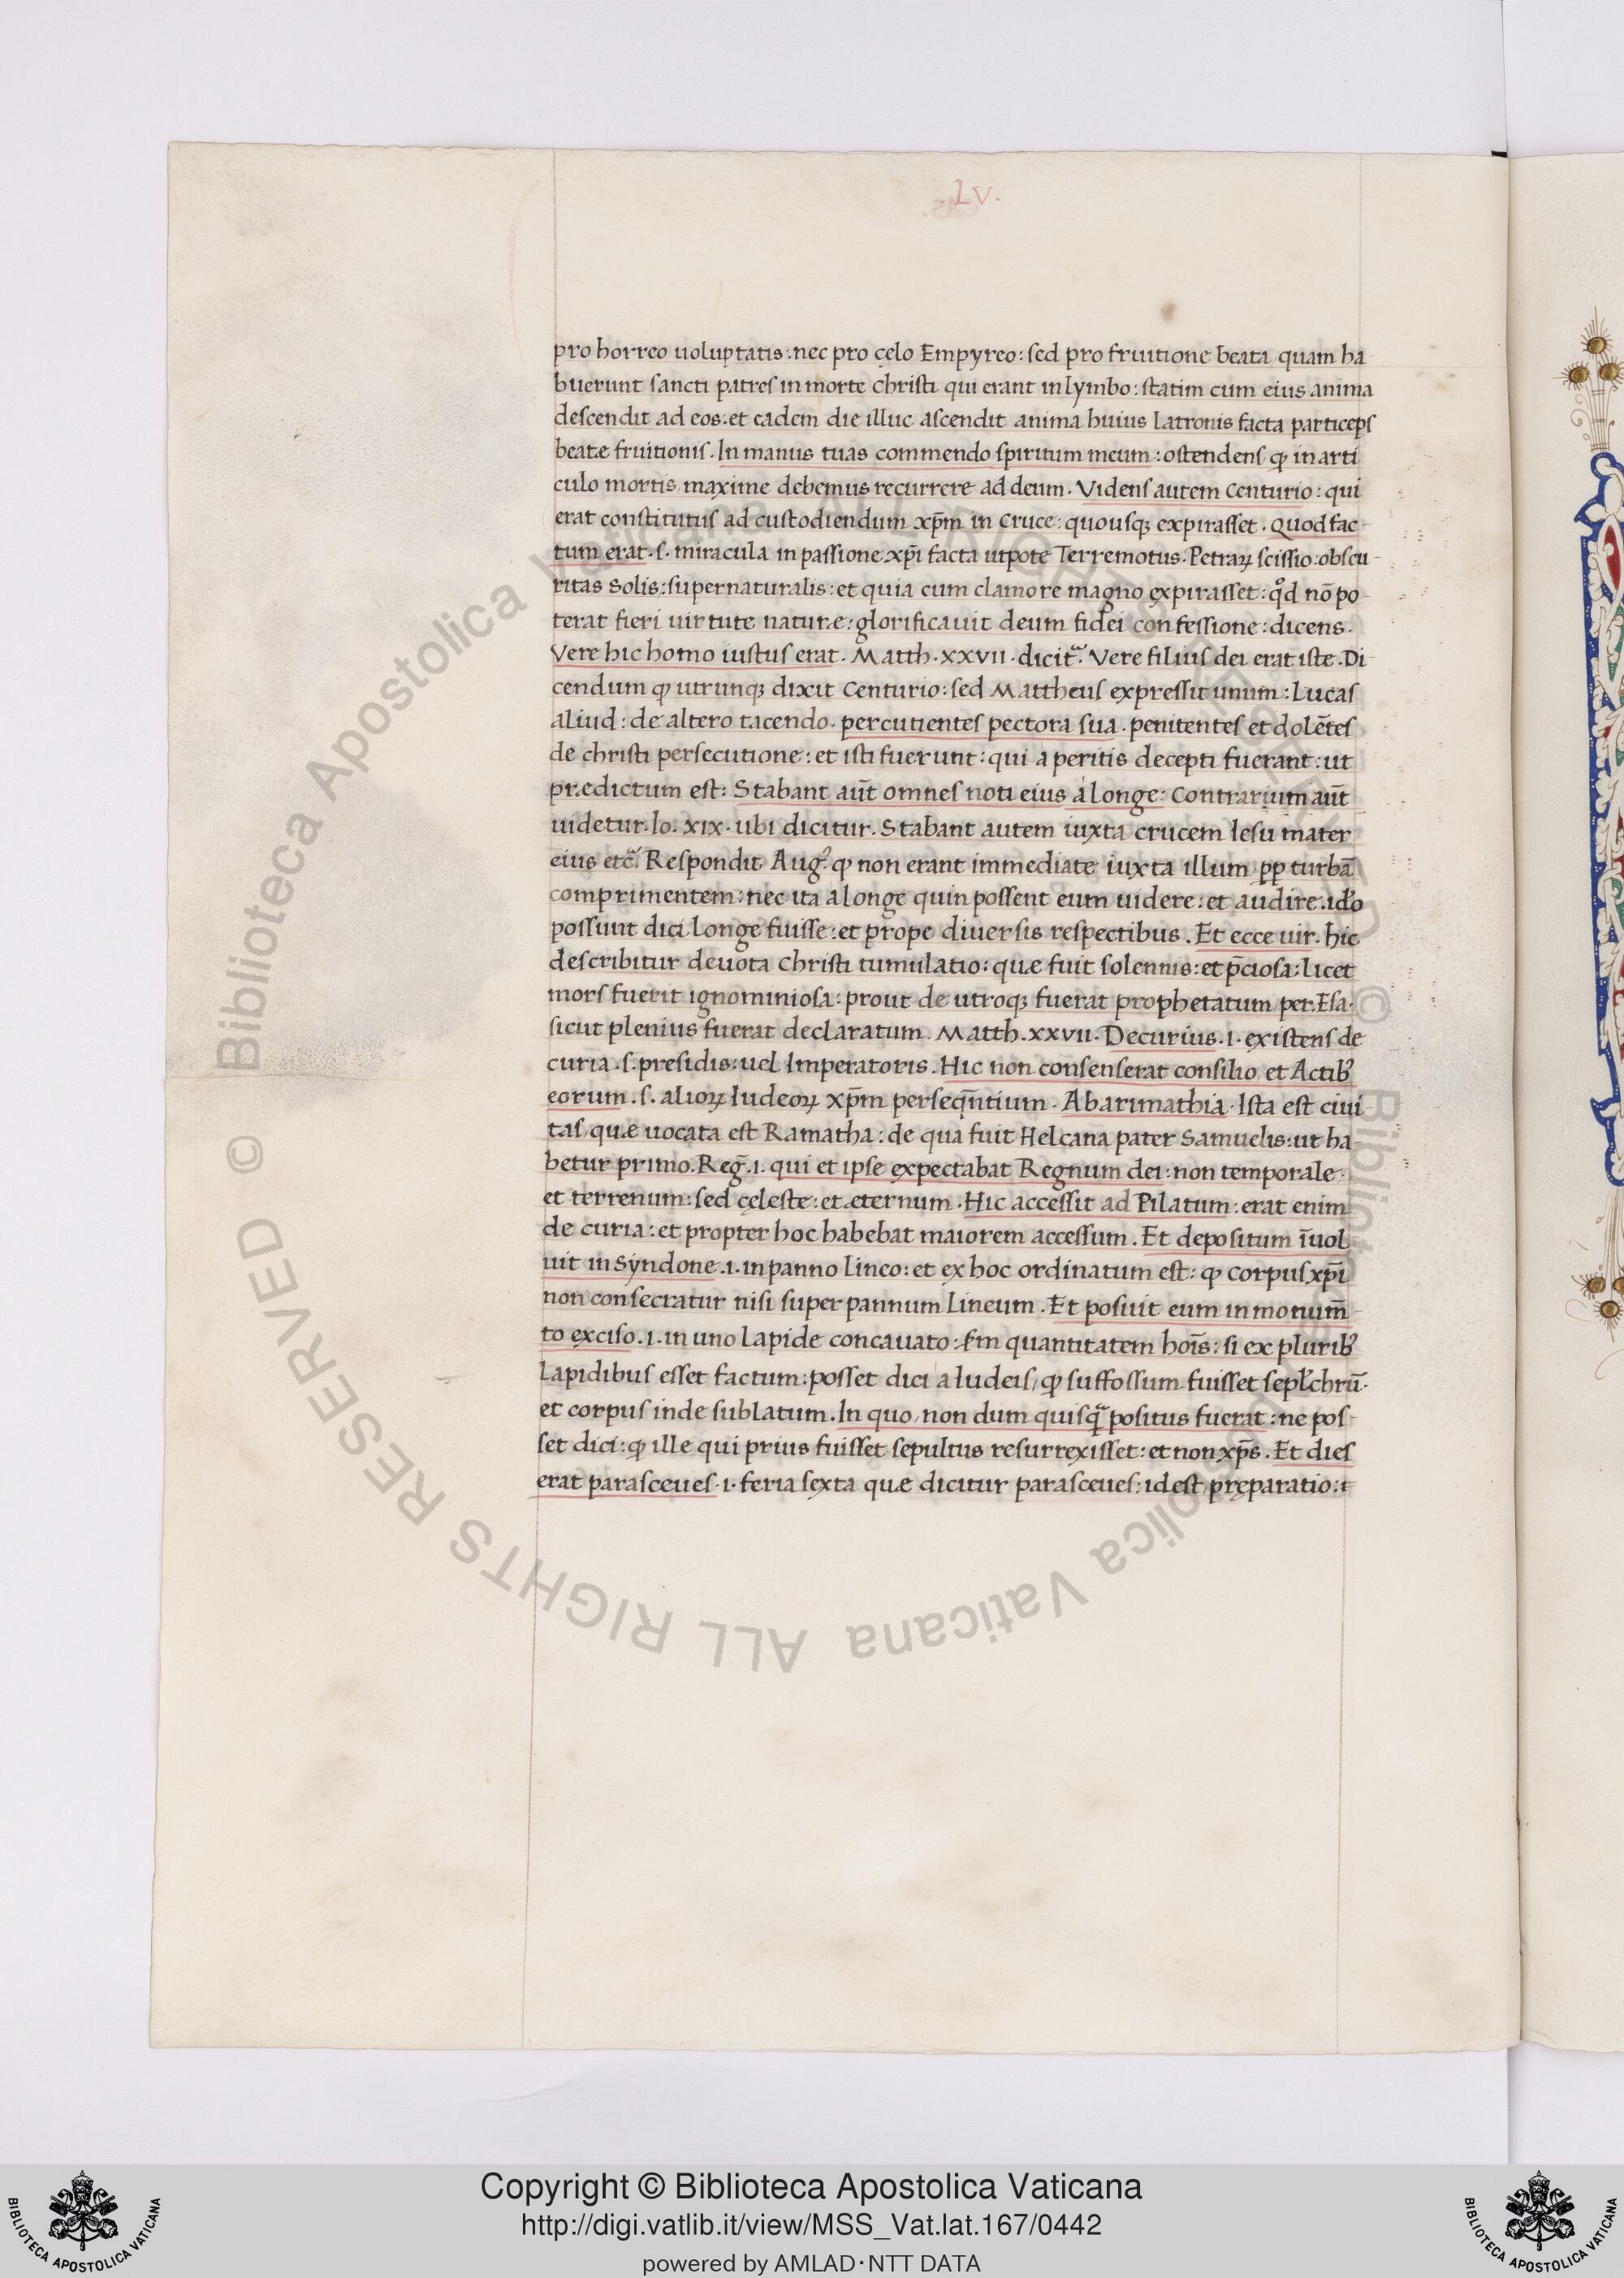 .LV.
pro horreo uoluptatis: nec pro cęlo Empyreo: sed pro fruitione beata quam ha
buerunt sancti patres in morte christi qui erant in lymbo: statim cum eius anima
descendit ad eos. et eadem die illuc ascendit anima huius Latronis facta particeps
beatæ fruitionis. In manus tuas commendo spiritum meum: ostendens ꝙ in arti
culo mortis maxime debemus recurrere ad deum. Videns autem Centurio: qui
erat constitutus ad custodiendum xp̄m in Cruce: quousq; expirasset. Quod fac-
tum erat. s. miracula in passione xp̄i facta utpote Terremotus. Petraꝝ scissio: obscu-
ritas Solis: supernaturalis: et quia cum clamore magno expirasset: qͦd nō po-
terat fieri uirtute naturæ: glorificauit deum fidei confessione: dicens.
Vere hic homo iustus erat. Matth. XXVII. dicitᷓ. Vere filius dei erat iste. Di-
cendum ꝙ utrunq; dixit Centurio: sed Mattheus expressit unum: Lucas
aliud: de altero tacendo. percutientes pectora sua. penitentes et dolētes
de christi persecutione: et isti fuerunt: qui a peritis decepti fuerant: ut
prædictum est: Stabant aūt omnes noti eius a longe: Contrarium aūt
uidetur. Io. XIX. ubi dicitur. Stabant autem iuxta crucem Iesu mater
eius etcᷓ. Respondit Aug.ꝰ ꝙ non erant immediate iuxta illum ꝓp turbā
comprimentem: nec ita a longe quin possent eum uidere: et audire. id̓o
possunt dici longe fuisse: et prope diuersis respectibus. Et ecce uir. hic
describitur deuota Christi tumulatio: quæ fuit solennis: et p̄ciosa: licet
mors fuerit ignominiosa: prout de utroq; fuerat prophetatum per. Esa.
sicut plenius fuerat declaratum. Matth. XXVII. Decurius. i. existens de
curia. s. presidis: uel Imperatoris. Hic non consenserat consilio et Actibꝰ
eorum. s. alioꝝ Iudeoꝝ xp̄m perseqn̄tium. Abarimathia. Ista est ciui-
tas quæ uocata est Ramatha: de qua fuit Helcana pater Samuelis: ut ha-
betur primo. Reg̃. i. qui et ipse expectabat Regnum dei: non temporale:
et terrenum: sed cęleste: et æternum. Hic accessit ad Pilatum: erat enim
de curia: et propter hoc habebat maiorem accessum. Et depositum īuol
uit in Syndone. i. in panno lineo: et ex hoc ordinatum est: ꝙ corpus xp̄i
non consecratur nisi super pannum lineum. Et posuit eum in monum̄-
to exciso. i. in uno lapide concauato: ẜm quantitatem hoīs: si ex pluribꝰ
Lapidibus esset factum: posset dici a Iudeis, ꝙ suffossum fuisset sepl̓chrū.
et corpus inde sublatum. In quo non dum quisqᷓ positus fuerat: ne pos-
set dici: ꝙ ille qui prius fuisset sepultus resurrexisset: et non xp̄s. Et dies
erat parasceues. i. feria sexta quæ dicitur parasceues: idest pręparatio: ⁊
© Biblioteca Apostolica Vaticana ALL RIGHTS RESERVED
Copyright © Biblioteca Apostolica Vaticana
http://digi.vatlib.it/view/MSS_Vat.lat.167/0442
powered by AMLAD·NTT DATA
BIBLIOTECA APOSTOLICA VATICANA
BIBLIOTECA APOSTOLICA VATICANA